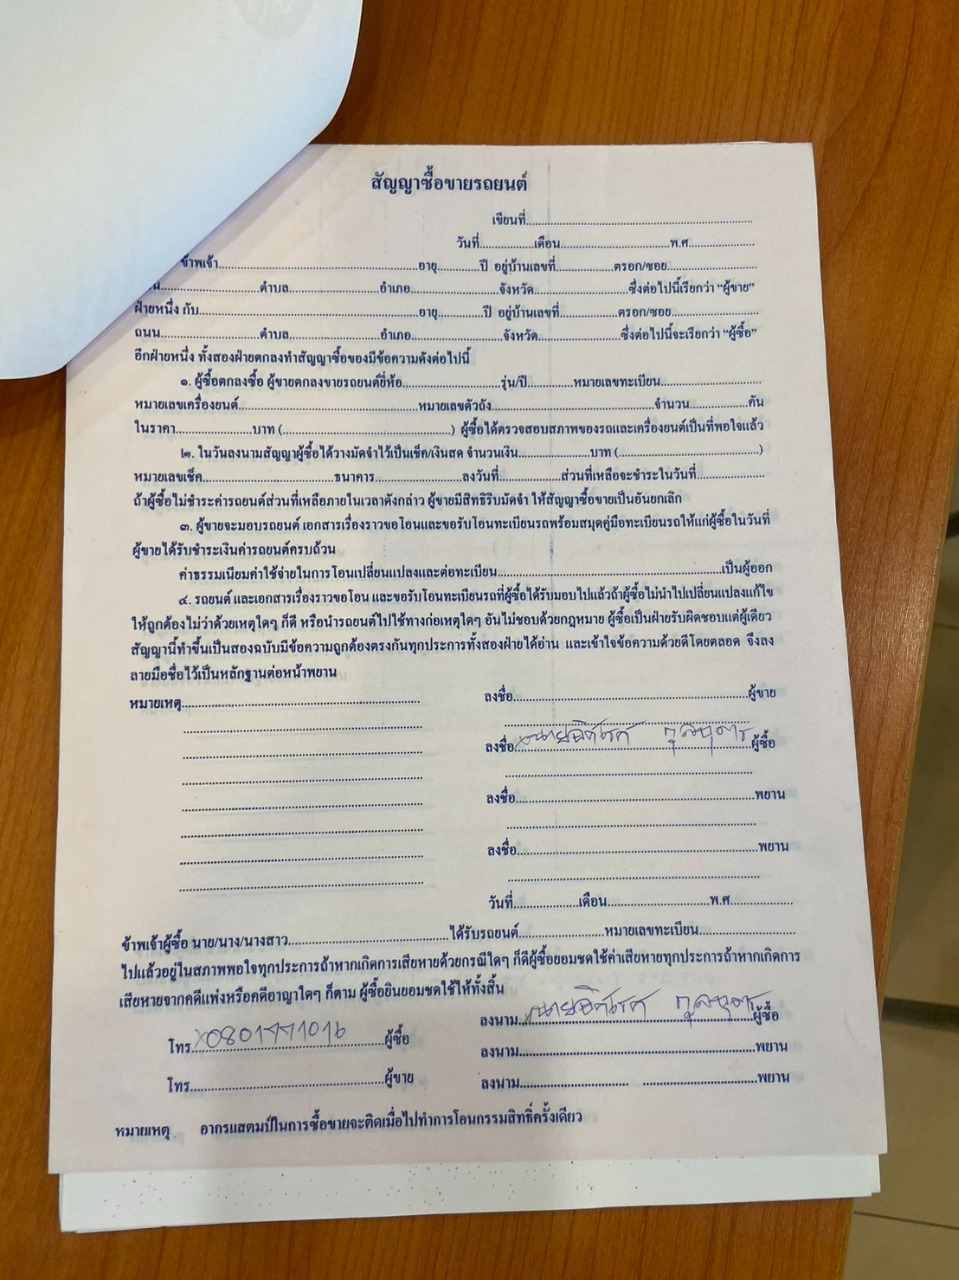 สัญญาซื้อขายรถยนต์
เขียนที่..........
วันที่..........เดือน..........พ.ศ..........
ข้าพเจ้า..........อายุ..........ปี อยู่บ้านเลขที่..........ตรอก/ซอย..........
..........ตำบล..........อำเภอ..........จังหวัด..........ซึ่งต่อไปนี้เรียกว่า "ผู้ขาย"
ฝ่ายหนึ่ง กับ..........อายุ..........ปี อยู่บ้านเลขที่..........ตรอก/ซอย..........
ถนน..........ตำบล..........อำเภอ..........จังหวัด..........ซึ่งต่อไปนี้จะเรียกว่า "ผู้ซื้อ"
อีกฝ่ายหนึ่ง ทั้งสองฝ่ายตกลงทำสัญญาซื้อของมีข้อความดังต่อไปนี้
๑. ผู้ซื้อตกลงซื้อ ผู้ขายตกลงขายรถยนต์ยี่ห้อ..........รุ่น/ปี..........หมายเลขทะเบียน..........
หมายเลขเครื่องยนต์..........หมายเลขตัวถัง..........จำนวน..........คัน
ในราคา..........บาท (..........) ผู้ซื้อได้ตรวจสอบสภาพของรถและเครื่องยนต์เป็นที่พอใจแล้ว
๒. ในวันลงนามสัญญาผู้ซื้อได้วางมัดจำไว้เป็นเช็ค/เงินสด จำนวนเงิน..........บาท (..........)
หมายเลขเช็ค..........ธนาคาร..........ลงวันที่..........ส่วนที่เหลือจะชำระในวันที่..........
ถ้าผู้ซื้อไม่ชำระค่ารถยนต์ส่วนที่เหลือภายในเวลาดังกล่าว ผู้ขายมีสิทธิริบมัดจำ ให้สัญญาซื้อขายเป็นอันยกเลิก
๓. ผู้ขายจะมอบรถยนต์ เอกสารเรื่องราวขอโอนและขอรับโอนทะเบียนรถพร้อมสมุดคู่มือทะเบียนรถให้แก่ผู้ซื้อในวันที่
ผู้ขายได้รับชำระเงินค่ารถยนต์ครบถ้วน
ค่าธรรมเนียมค่าใช้จ่ายในการโอนเปลี่ยนแปลงและต่อทะเบียน..........เป็นผู้ออก
๔. รถยนต์ และเอกสารเรื่องราวขอโอน และขอรับโอนทะเบียนรถที่ผู้ซื้อได้รับมอบไปแล้วถ้าผู้ซื้อไม่นำไปเปลี่ยนแปลงแก้ไข
ให้ถูกต้องไม่ว่าด้วยเหตุใดๆ ก็ดี หรือนำรถยนต์ไปใช้ทางก่อเหตุใดๆ อันไม่ชอบด้วยกฎหมาย ผู้ซื้อเป็นฝ่ายรับผิดชอบแต่ผู้เดียว
สัญญานี้ทำขึ้นเป็นสองฉบับมีข้อความถูกต้องตรงกันทุกประการทั้งสองฝ่ายได้อ่าน และเข้าใจข้อความด้วยดีโดยตลอด จึงลง
ลายมือชื่อไว้เป็นหลักฐานต่อหน้าพยาน
หมายเหตุ..........
ลงชื่อ..........ผู้ขาย
ลงชื่อ..........ผู้ซื้อ
ลงชื่อ..........พยาน
ลงชื่อ..........พยาน
วันที่..........เดือน..........พ.ศ..........
ข้าพเจ้าผู้ซื้อ นาย/นาง/นางสาว..........ได้รับรถยนต์..........หมายเลขทะเบียน..........
ไปแล้วอยู่ในสภาพพอใจทุกประการถ้าหากเกิดการเสียหายด้วยกรณีใดๆ ก็ดีผู้ซื้อยอมชดใช้ค่าเสียหายทุกประการถ้าหากเกิดการ
เสียหายจากคดีแพ่งหรือคดีอาญาใดๆ ก็ตาม ผู้ซื้อยินยอมชดใช้ให้ทั้งสิ้น
ลงนาม..........ผู้ซื้อ
โทร..........ผู้ซื้อ
ลงนาม..........พยาน
โทร..........ผู้ขาย
ลงนาม..........พยาน
หมายเหตุ อากรแสตมป์ในการซื้อขายจะติดเมื่อไปทำการโอนกรรมสิทธิ์ครั้งเดียว